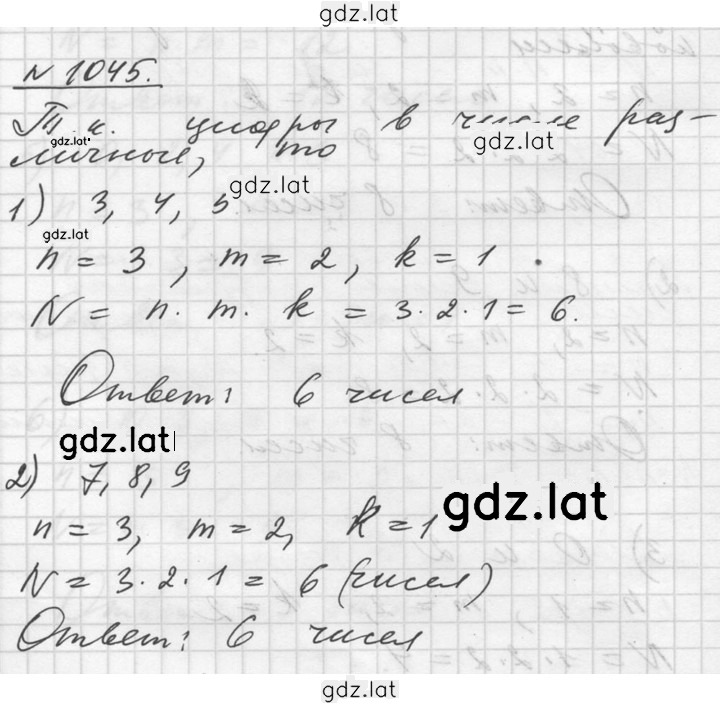 gdz.lat
N 1045.
Т.к. цифры в числе раз-
gdz.lat
gdz.lat
личные, то
gdz.lat
1) 3, 4, 5.
gdz.lat
n = 3, m = 2, k = 1.
N = n. m. k = 3.2.1 = 6.
Ответ: 6 чисел
gdz.lat
2) 7, 8, 9
gdz.lat
n = 3, m = 2, k = 1
N = 3.2.1 = 6 (чисел)
Ответ: 6 чисел
gdz.lat